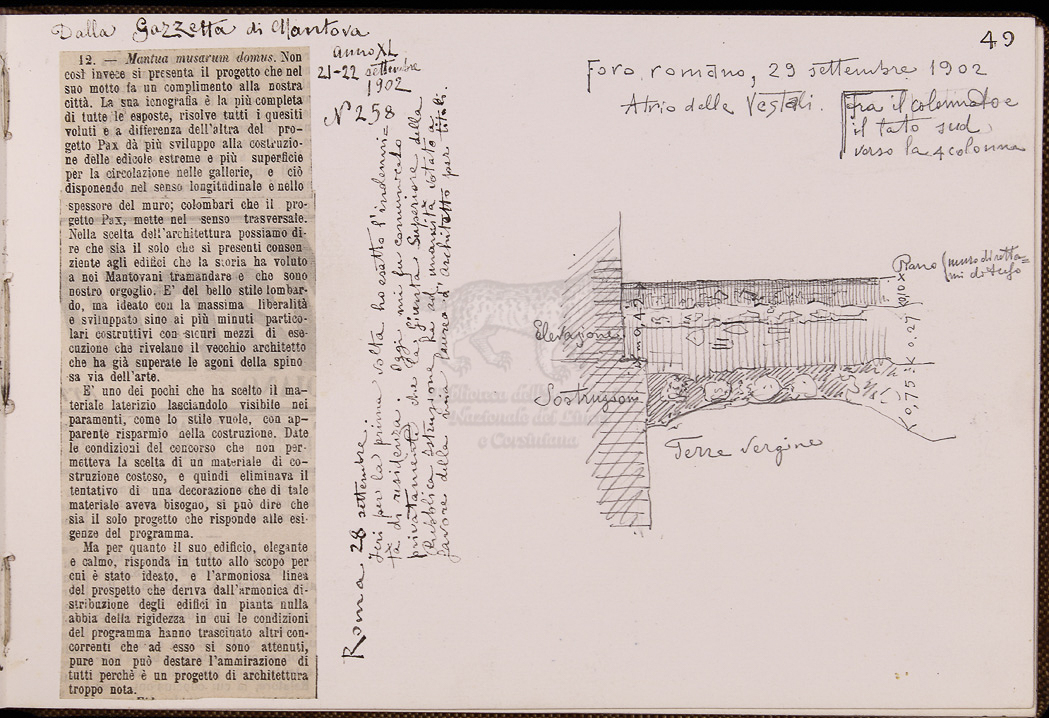 49
Dalla Gazzetta di Mantova
anno XL
21-22 settembre
1902
N° 258
12. — Mantua musarum domus. Non
così invece si presenta il progetto che nel
suo motto fa un complimento alla nostra
città. La sua icnografia è la più completa
di tutte le esposte, risolve tutti i quesiti
voluti e a differenza dell'altra del pro-
getto Pax dà più sviluppo alla costruzio-
ne delle edicole estreme e più superficie
per la circolazione nelle gallerie, e ciò
disponendo nel senso longitudinale e nello
spessore del muro; colombari che il pro-
getto Pax, mette nel senso trasversale.
Nella scelta dell'architettura possiamo di-
re che sia il solo che si presenti consen
ziente agli edifici che la storia ha voluto
a noi Mantovani tramandare e che sono
nostro orgoglio. E' del bello stile lombar-
do, ma ideato con la massima liberalità
e sviluppato sino ai più minuti partico-
lari costruttivi con sicuri mezzi di ese-
cuzione che rivelano il vecchio architetto
che ha già superate le agoni della spino
sa via dell'arte.
E' uno dei pochi che ha scelto il ma-
teriale laterizio lasciandolo visibile nei
paramenti, come lo stile vuole, con ap-
parente risparmio nella costruzione. Date
le condizioni del concorso che non per-
metteva la scelta di un materiale di co-
struzione costoso, e quindi eliminava il
tentativo di una decorazione che di tale
materiale aveva bisogno, si può dire che
sia il solo progetto che risponde alle esi-
genze del programma.
Ma per quanto il suo edificio, elegante
e calmo, risponda in tutto allo scopo per
cui è stato ideato, e l'armoniosa linea
del prospetto che deriva dall'armonica di-
stribuzione degli edifici in pianta nulla
abbia della rigidezza in cui le condizioni
del programma hanno trascinato altri con-
correnti che ad esso si sono attenuti,
pure non può destare l'ammirazione di
tutti perchè è un progetto di architettura
troppo nota.
Roma 28 settembre.
Jeri per la prima volta ho esatto l'indenni=
tà di residenza. Oggi mi fu comunicato
privatamente che la Giunta Superiore della
Pubblica istruzione ha ad unanimità
favore della mia laurea d'architetto per titoli.
Foro romano, 29 settembre 1902
Atrio delle Vestali.
Fra il colonnato e
il lato sud
verso la 4 colonna
Piano
muro di rotta=
mi di tufo
Elevazione
Sostruzioni
m 0,42
0,10
0,27
0,75
Terre vergine
Biblioteca
Nazionale dei Lincei
e Corsiniana